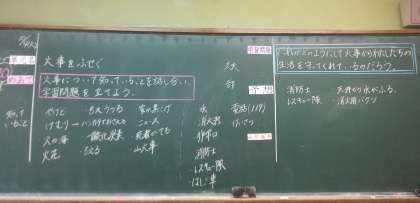 火事をふせぐ
火事について知っていることを話し合い、
学習問題を立てよう。
知っていること
やけど
けむり→ハンカチでおさえる
火の海
火花
もえうつる
一酸化炭素
もえる
家が黒こげ
ニュース
死者がでる
山火事
水
消火器
消防士
レスキュー隊
はしご車
電話(119)
けいさつ
学習問題
だれがどのようにして火事からわたしたちの
生活を守ってくれているのだろう。
予想
消防士
レスキュー隊
天井から水がふる。
消火用バケツ